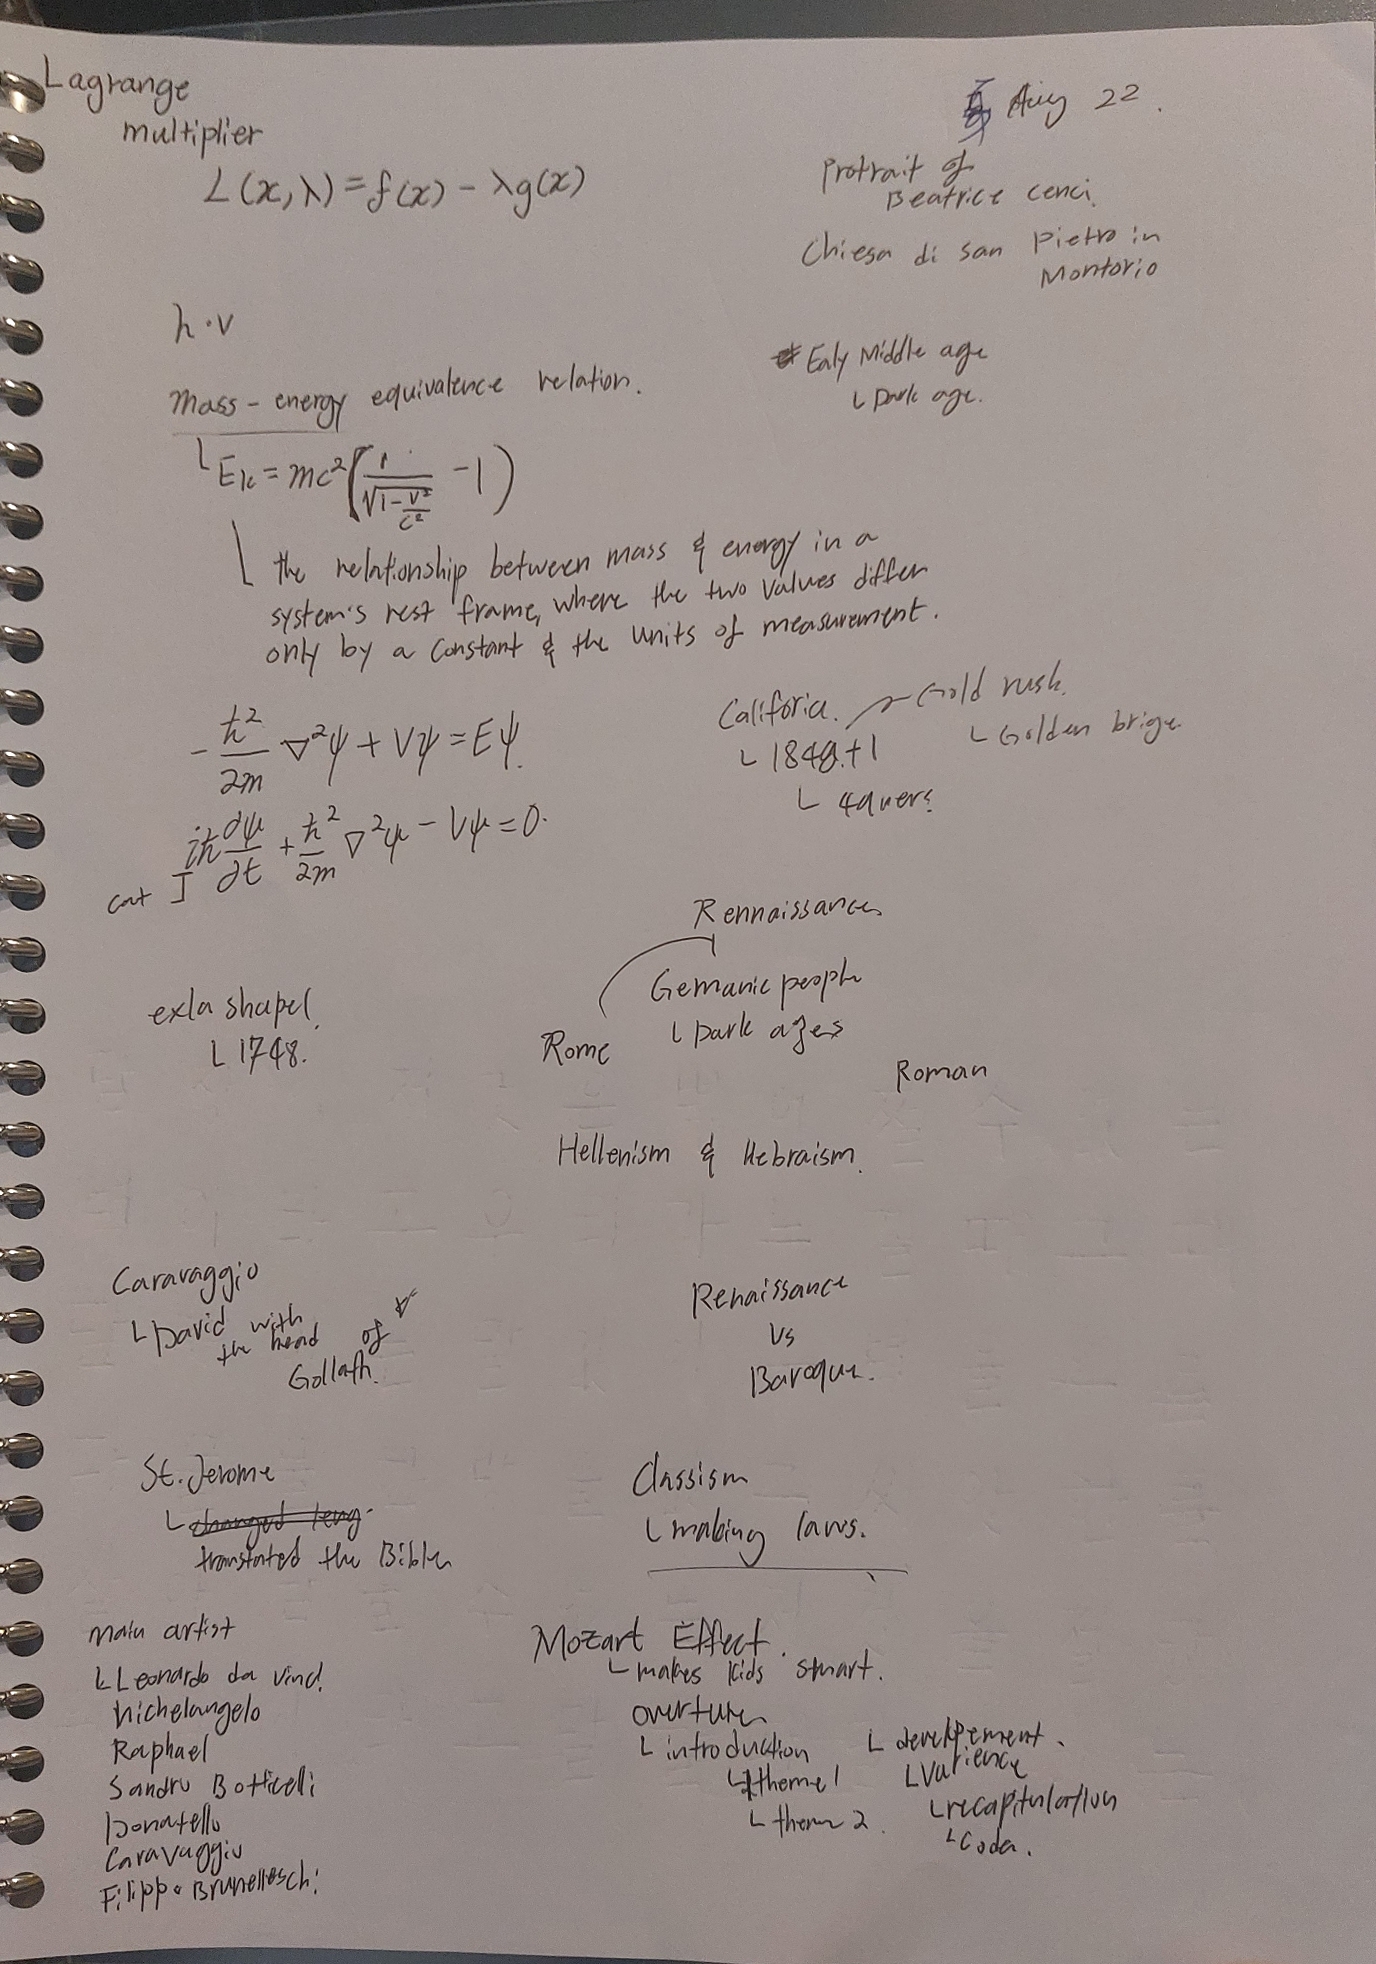 Lagrange
multiplier
L(x,λ)=f(x)-λg(x)
Aug 22.
Protrait of
Beatrice cenci.
Chiesa di san Pietro in
Montorio
h·v
Ealy Middle age
└ Dark age.
Mass-energy equivalence relation.
└ Ek=mc²(1/√(1-v²/c²) -1)
└ the relationship between mass & energy in a
system's rest frame, where the two values differ
only by a constant & the units of measurement.
Califoria. Gold rush.
└ 1849.+1 └ Golden brige
└ 49uers
-ℏ²/2m ∇²ψ+Vψ=Eψ.
iℏ∂ψ/∂t+ℏ²/2m ∇²ψ-Vψ=0.
cat
Rennaissance
Gemanic people
└ Dark ages
Rome
Roman
exla shapel.
└ 1748.
Hellenism & Hebraism.
Caravaggio
└ David with
the head of
Goliath.
Renaissance
vs
Baroque.
St. Jerome
└ changed leng
translated the Bible
Classism
└ making laws.
Main artist
└ Leonardo da vinci.
Michelangelo
Raphael
Sandro Botticelli
Donatello
Caravaggio
Filippo Brunellesch:
Mozart Effect.
└ makes kids smart.
overture
└ introduction
└ theme 1
└ theme 2.
└ develpement.
└ Varience
└ recapitulation
└ Coda.